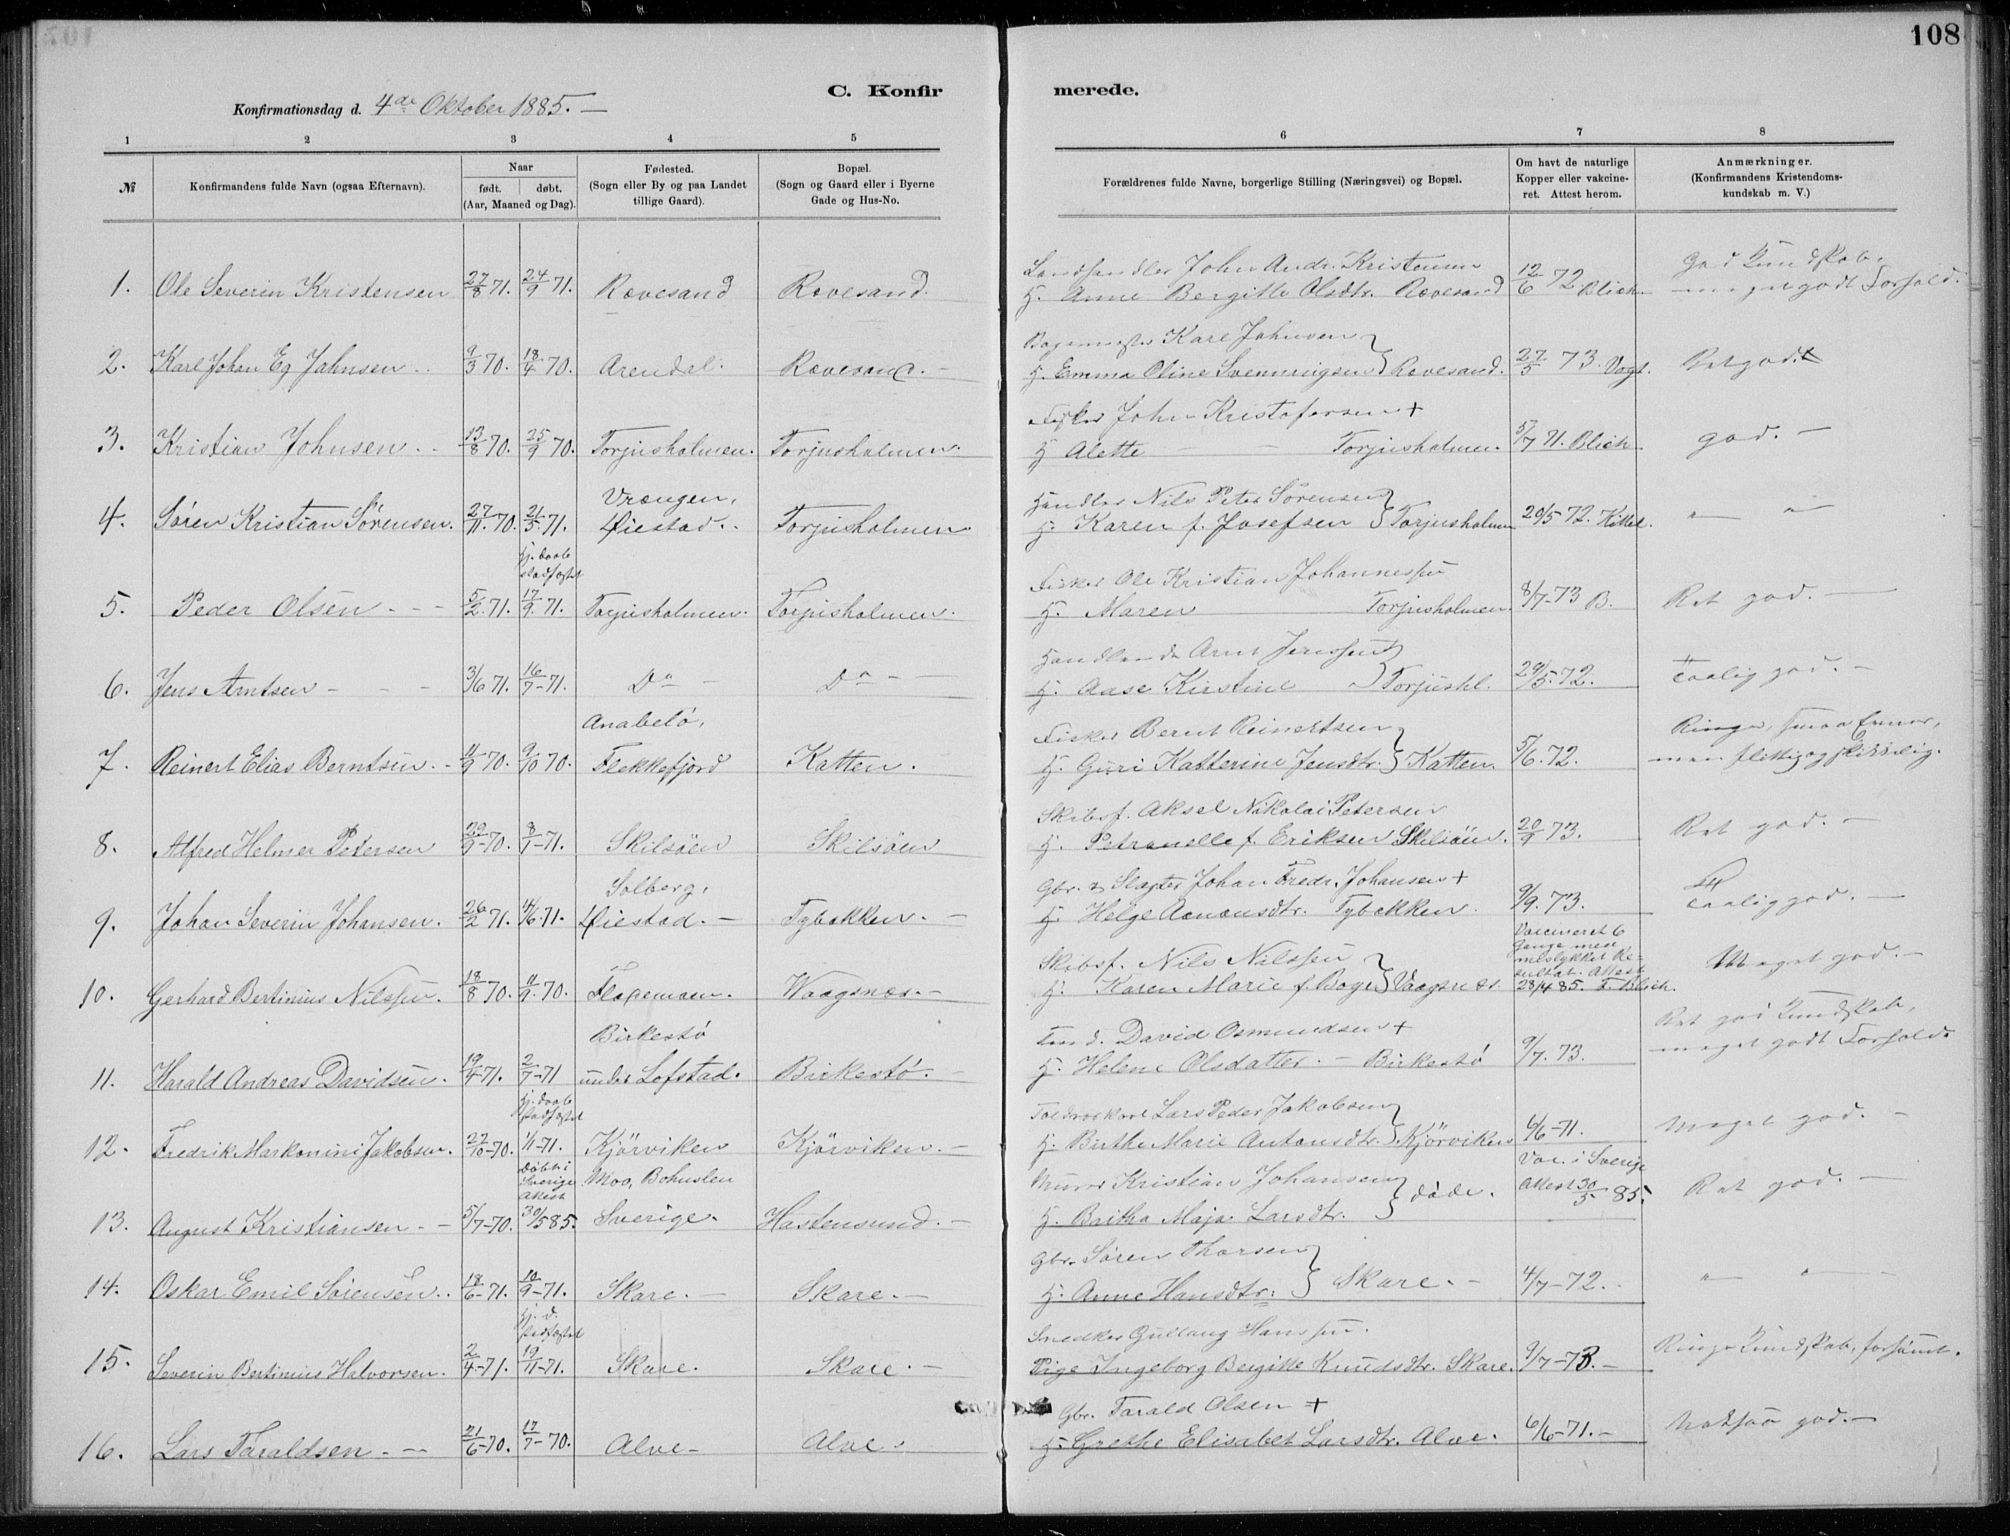 108
C. Konfirmerede.
Konfirmationsdag d. 4de Oktober 1885. —
1 2 3 4 5 6 7 8
№ Konfirmandens fulde Navn (ogsaa Efternavn). Naar født. døbt. (Aar, Maaned og Dag). Fødested. (Sogn eller By og paa Landet tillige Gaard). Bopæl. (Sogn og Gaard eller i Byerne Gade og Hus-No. Forældrenes fulde Navne, borgerlige Stilling (Næringsvei) og Bopæl. Om havt de naturlige Kopper eller vakcineret. Attest herom. Anmærkninger. (Konfirmandens Kristendomskundskab m. V.)
Landhandler John Andr. Kristensen god Kundskab,
1. Ole Severin Kristensen 27/8 71. 24/9 71. Rævesand Rævesand. H. Anne Bergitte Olsdtr. Rævesand 12/6 72 Blich meget godt Forhold.
Karl Johnsen
2. Karl Johan Eg Johnsen .. 9/3 70. 18/4 70. Arendal. Rævesand. — H. Emma Oline Svenningsen Rævesand. 27/5 73. Vogt. Ret god.
Fisker John Kristofersen +
3. Kristian Johnsen .. 13/8 70. 25/9 70. Torjusholmen. Torjusholmen. H Alette — Torjusholmen. 5/7 71. Blich god. —
Vrængen, Handler Nils Peter Sørensen
4. Søren Kristian Sørensen. 27/11. 70. 21/5 71. Øiestad.. Torjusholmen H. Karen f. Josefsen Torjusholmen 29/5 72. Kittel. " "
hj. daab stadfæstet Fisker Ole Kristian Johannessen
5. Peder Olsen - - - 5/2 71. 17/9 71. Torjusholmen. Torjusholmen. H. Maren Torjusholmen. 8/7-73 B. Ret god. —
Handlende Arnt Jenssen
6. Jens Arntsen - - - 3/6 71. 16/7-71. Do — Do — H. Aase Kirstine Torjushl. 29/5. 72. taalig god. —
Anabelø, Fisker Bernt Reinertsen Ringe, smaa Evner,
7. Reinert Elias Berntsen. 11/9 70. 9/10 70. Flekkefjord Katten. H. Guri Katherine Jensdtr. Katten. 5/6. 72. men flittig og skikkelig.
Skibsf. Aksel Nikolai Petersen
8. Alfred Helmer Petersen 29/9-70. 8/7-71. Skilsøen Skilsøen H. Petronelle f. Eriksen Skilsøen. 20/9 73. Ret god. —
Solberg, Gbr. & Slagter Johan Fredr. Johansen +
9. Johan Severin Johansen. 26/2 71. 4/6. 71. Øiestad. — Tybakken. — H. Helge Aanonsdtr. Tybakken. 9/9. 73. taalig god. —
Skibsf. Nils Nilssen Vaccineret 6 Gange med mislykket Resultat. Attest
10. Gerhard Bertinius Nilssen. 18/8 70. 11/9. 70. Flagemoen. Waagsnæs. — H. Karen Marie f. Boye Vaagsnæs. 28/4 85. F. Blich. Meget god. —
Birkestø Tmd. David Osmundsen + Ret god Kundskab,
11. Harald Andreas Davidsen. 19/4 71. 2/7-71 under Lofstad. Birkestø. — H. Helene Olsdatter. — Birkestø 9/7. 73. meget godt Forhold.
hj. daab stadfæstet Toldroskarl Lars Peder Jakobsen
12. Fredrik Markonini Jakobsen. 27/10-70. 1/1-71. Kjørviken Kjørviken. — H. Birthe Marie Antonsdtr. Kjørviken 6/6-71. Meget god. —
Døbt i Sverige Attest Moo, Bohuslen Murer Kristian Johansen Vac. i Sverige
13. August Kristiansen. — 5/7-70. 30/5 85. Sverige. Hastensund. — H. Britha Maja Larsdtr. døde. Attest 30/5 85. Ret god. —
Gbr. Søren Thorsen
14. Oskar Emil Sørensen.. 18/6-71. 10/9-71. Skare. — Skare. — H. Anne Hansdtr. Skare. — 4/7-72. " "
hj. d. stadfæstet Snedker Gullaug Hanssen.
15. Severin Bertinius Halvorsen. 2/4-71. 19/11-71. Skare. Skare. — Pige Ingeborg Bergitte Knudsdtr. Skare. 9/7-73. — Ringe Kundskab, forsømt.
Gbr. Tarald Olsen +
16. Lars Taraldsen. — 21/6-70. 17/7-70. Alve — Alve. H. Grethe Elisabet Larsdtr. Alve. 6/6-71. — Nokssaa god. —